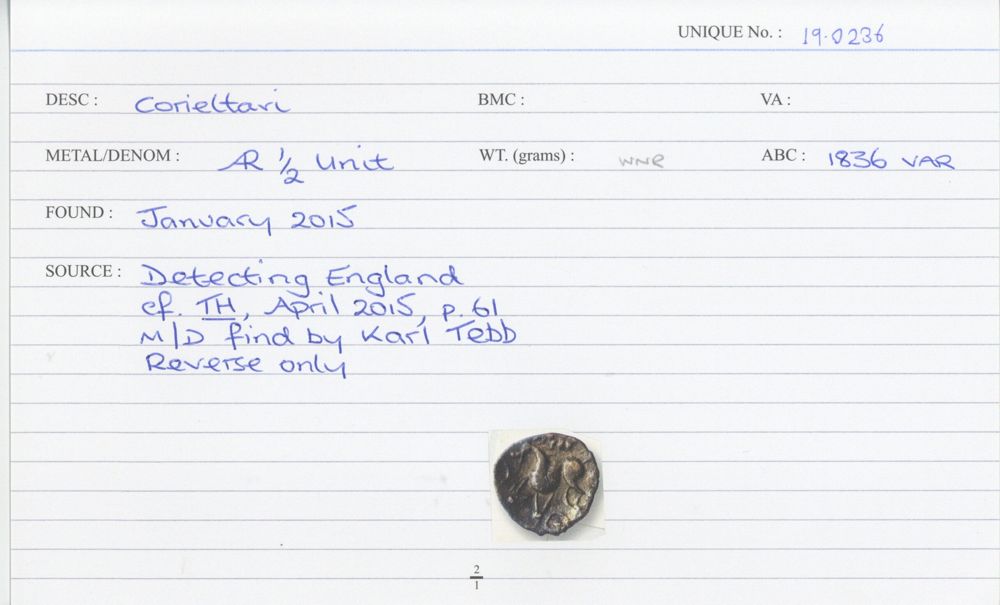 UNIQUE No. : 19.0236
DESC : Corieltavi BMC : VA :
METAL/DENOM : AR 1/2 Unit WT. (grams) : WNR ABC : 1836 VAR
FOUND : January 2015
SOURCE : Detecting England
cf. TH, April 2015, p. 61
M/D find by Karl Tebb
Reverse only
2
1